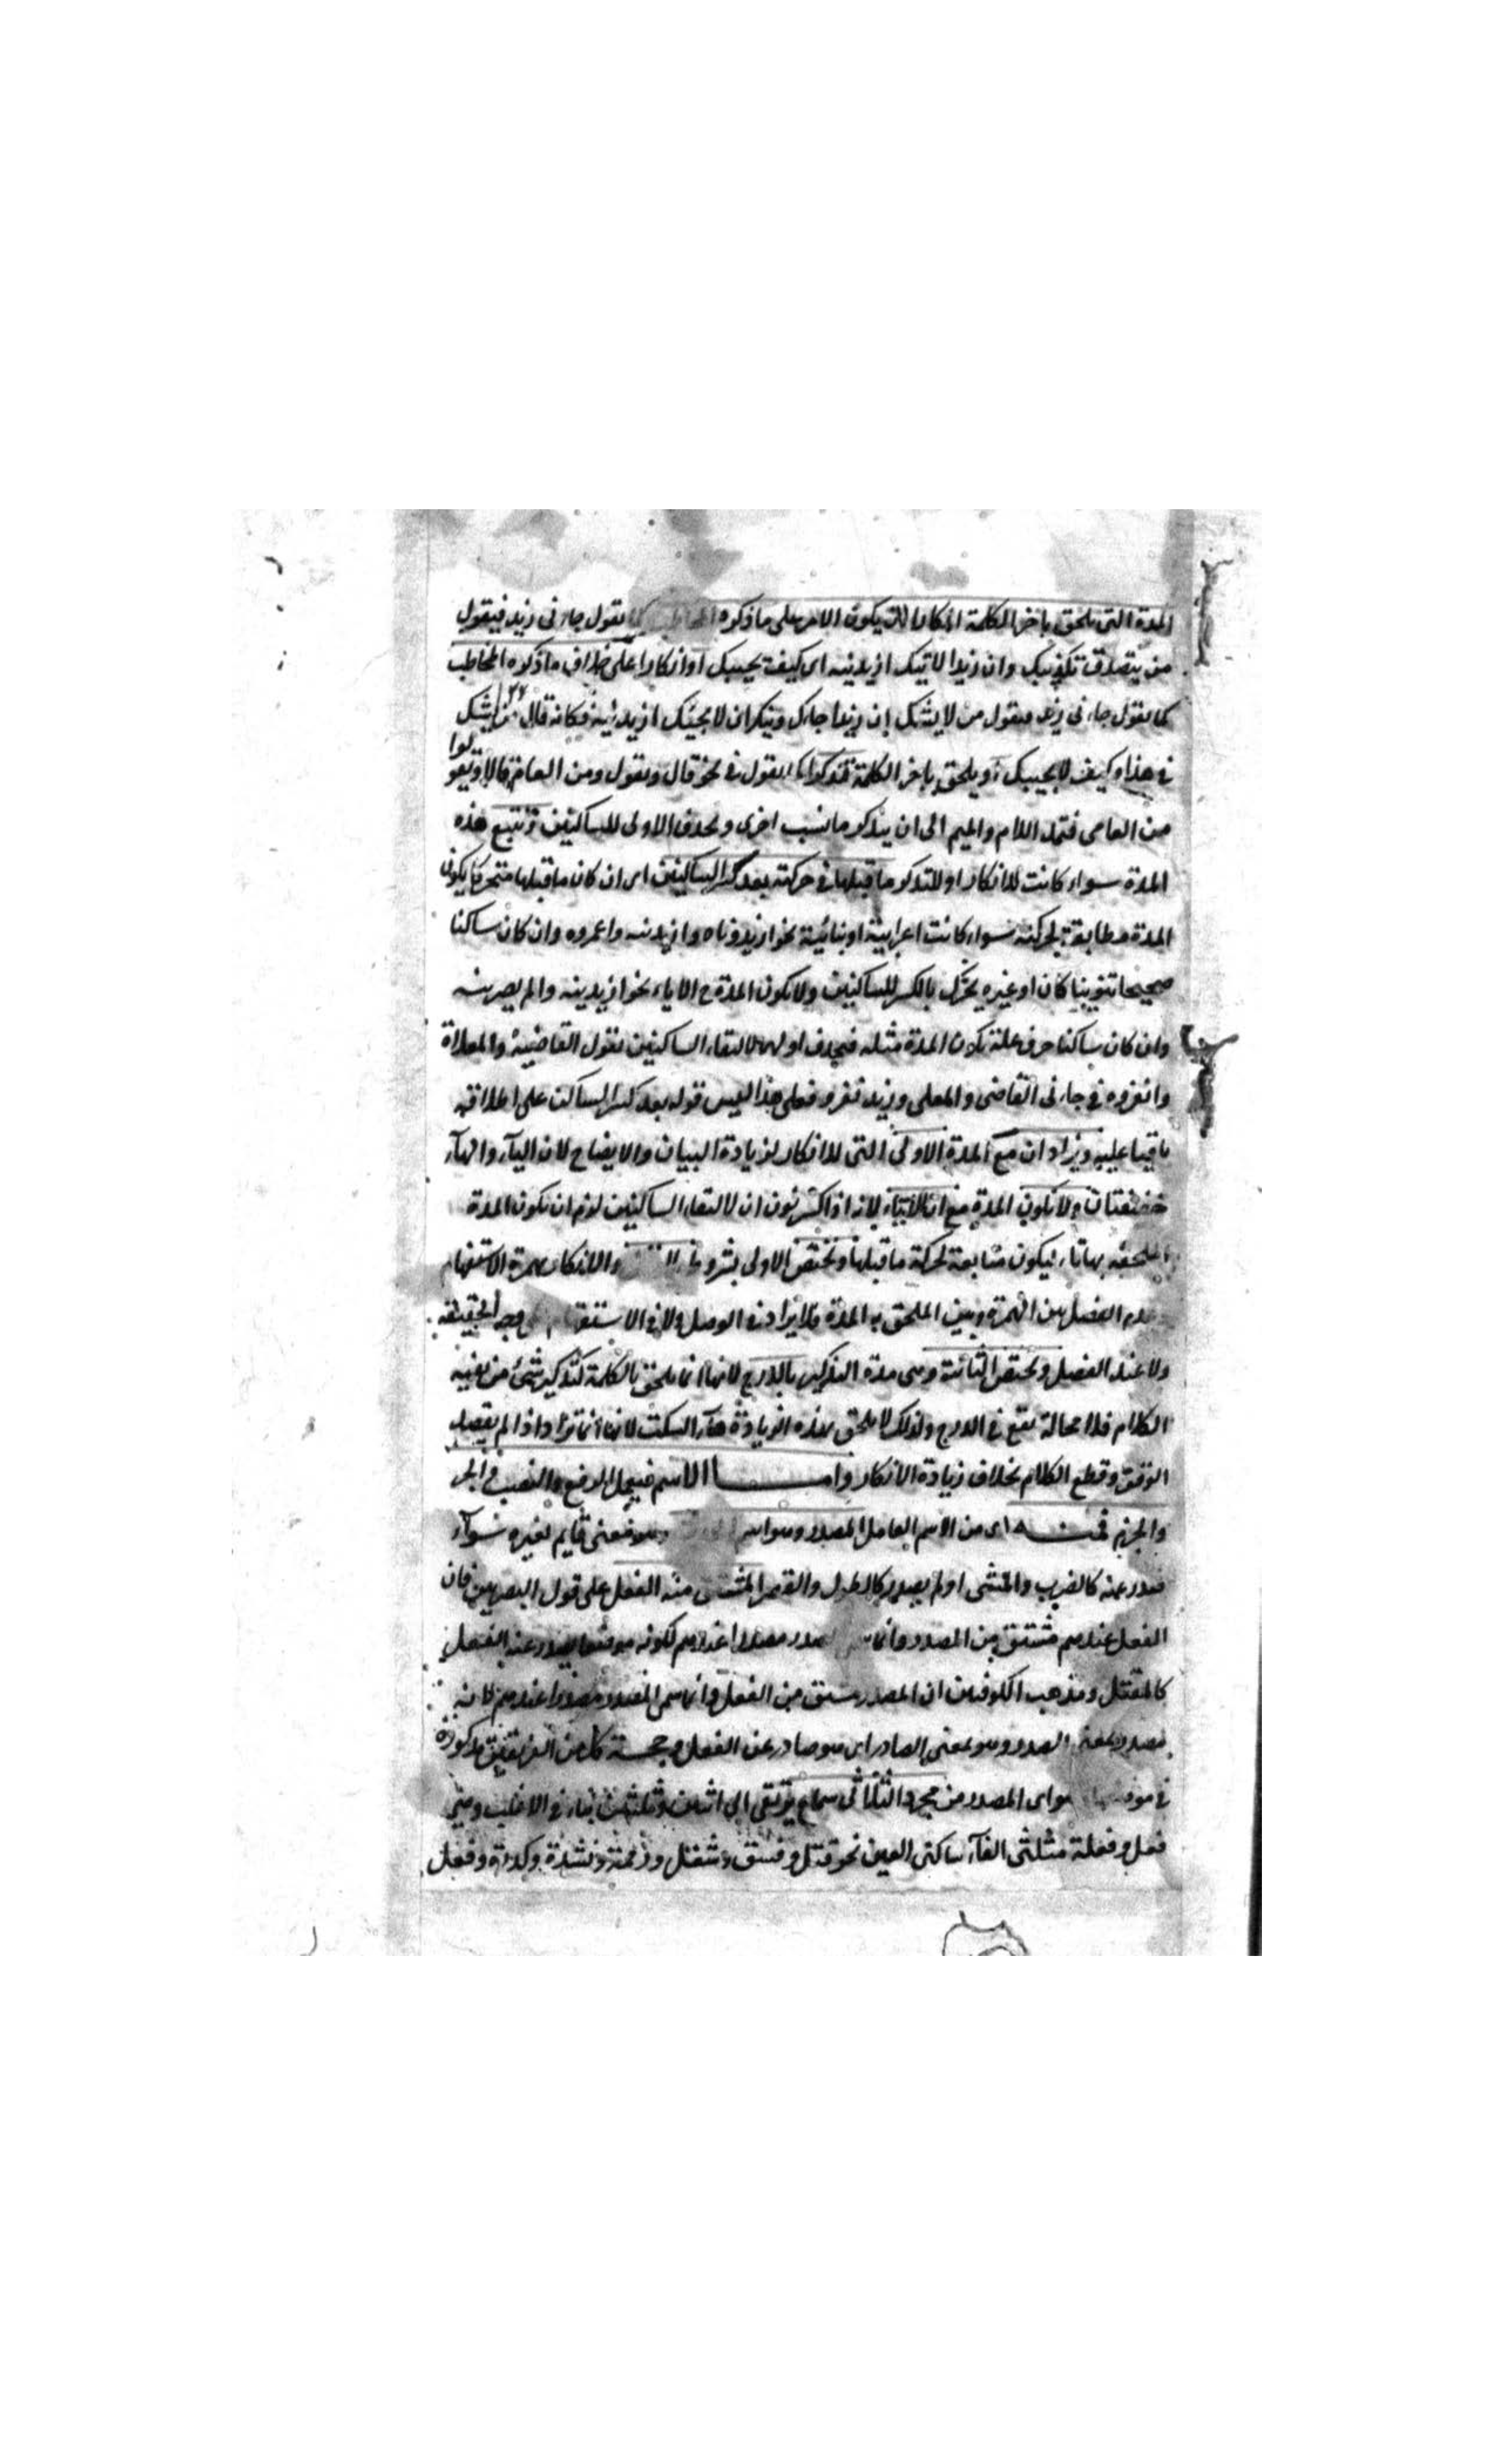 المدة التى تلحق باخر الكلمة انكارا لان يكون الامر على ما ذكره المخاطب كما تقول جاءنى زيد فيقول
من يتصدق تكذيبك وان زيدا لا تيك ازيدنيه اى كيف يجيبك او انكارا على خلاف ما ذكره المخاطب
كما تقول جاءنى زيد فيقول من لا يشك ان زيدا جاءك وينكر ان لا يجيئك ازيدنيه فكانه قال من يشك
فى هذا وكيف لا يجيبك ويلحق باخر الكلمة تذكرا كما تقول فى نحو قال ويقول ومن العام قالا ويقولوا
من العامى فتمد اللام والميم الى ان يتذكر ما نسب اخرى وتحذف الاولى للساكنين وتتبع هذه
المدة سواء كانت للانكار او للتذكر ما قبلها فى حركته بعد كسر الساكنين اى ان كان ما قبلها متحركا يكون
المدة مطابقة لحركته سواء كانت اعرابية او بنائية نحو ازيدوناه وازيدنيه واعمروه وان كان ساكنا
صحيحا تنوينا كان او غيره يحرك بالكسر للساكنين ولا يكون المدة ح الا ياء نحو ازيدنيه والم يضربنيه
وان كان ساكنا حرف علة تكون المدة مثله فيحذف اولهما لالتقاء الساكنين تقول القاضيه والمعلاه
وانغزوه فى جاءنى القاضى والمعلى وزيد تغزو فعلى هذا ليس قوله بعد كسر الساكن على اطلاقه
باقيا عليه ويزاد ان مع المدة الاولى التى للانكار لزيادة البيان والايضاح لان الياء والهاء
خفيفتان ولا تكون المدة مع ان الا ياء لانه اذا كسر نون ان لالتقاء الساكنين لزم ان تكون المدة
الملحقة بها ياء ليكون متابعة لحركة ما قبلها وتختص الاولى بشروط والانكار بهمزة الاستفهام
وعدم الفصل بين الهمزة وبين الملحق به المدة فلا يزاد فى الوصل ولا فى الاستفهام على وجه الحقيقة
ولا عند الفصل وتختص الثانية وهى مدة التذكير بالدرج لانها انما يلحق بالكلمة لتذكير شئ من بقية
الكلام فلا محالة تقع فى الدرج ولذلك لا يلحق بهذه الزيادة هاء السكت لانها انما تزاد اذا لم يقصد
الوقف وقطع الكلام بخلاف زيادة الانكار واما الاسم فيعمل الرفع والنصب والجر
والجزم فمنه اى من الاسم العامل المصدر وهو اسم معنى قايم بغيره سواء
صدر عنه كالضرب والمشى او لم يصدر كالطول والقصر المشتق منه الفعل على قول البصريين فان
الفعل عندهم مشتق من المصدر وانما المصدر مصدرا عندهم لكونه موضعا يصدر عنه الفعل
كالمقتل ومذهب الكوفيين ان المصدر مشتق من الفعل وانما سمى المصدر مصدرا عندهم لانه
مصدر بمعنى الصدور وهو بمعنى الصادر اى هو صادر عن الفعل وحجة كل من الفريقين مذكورة
فى هو اى المصدر من مجرد الثلاثى سماع يرتقى الى اثنين وثلثين بناء فى الاغلب وهى
فعل وفعلة مثلثى الفاء ساكنى العين نحو قتل وفسق وشغل ورحمة ونشدة وكدرة وفعل